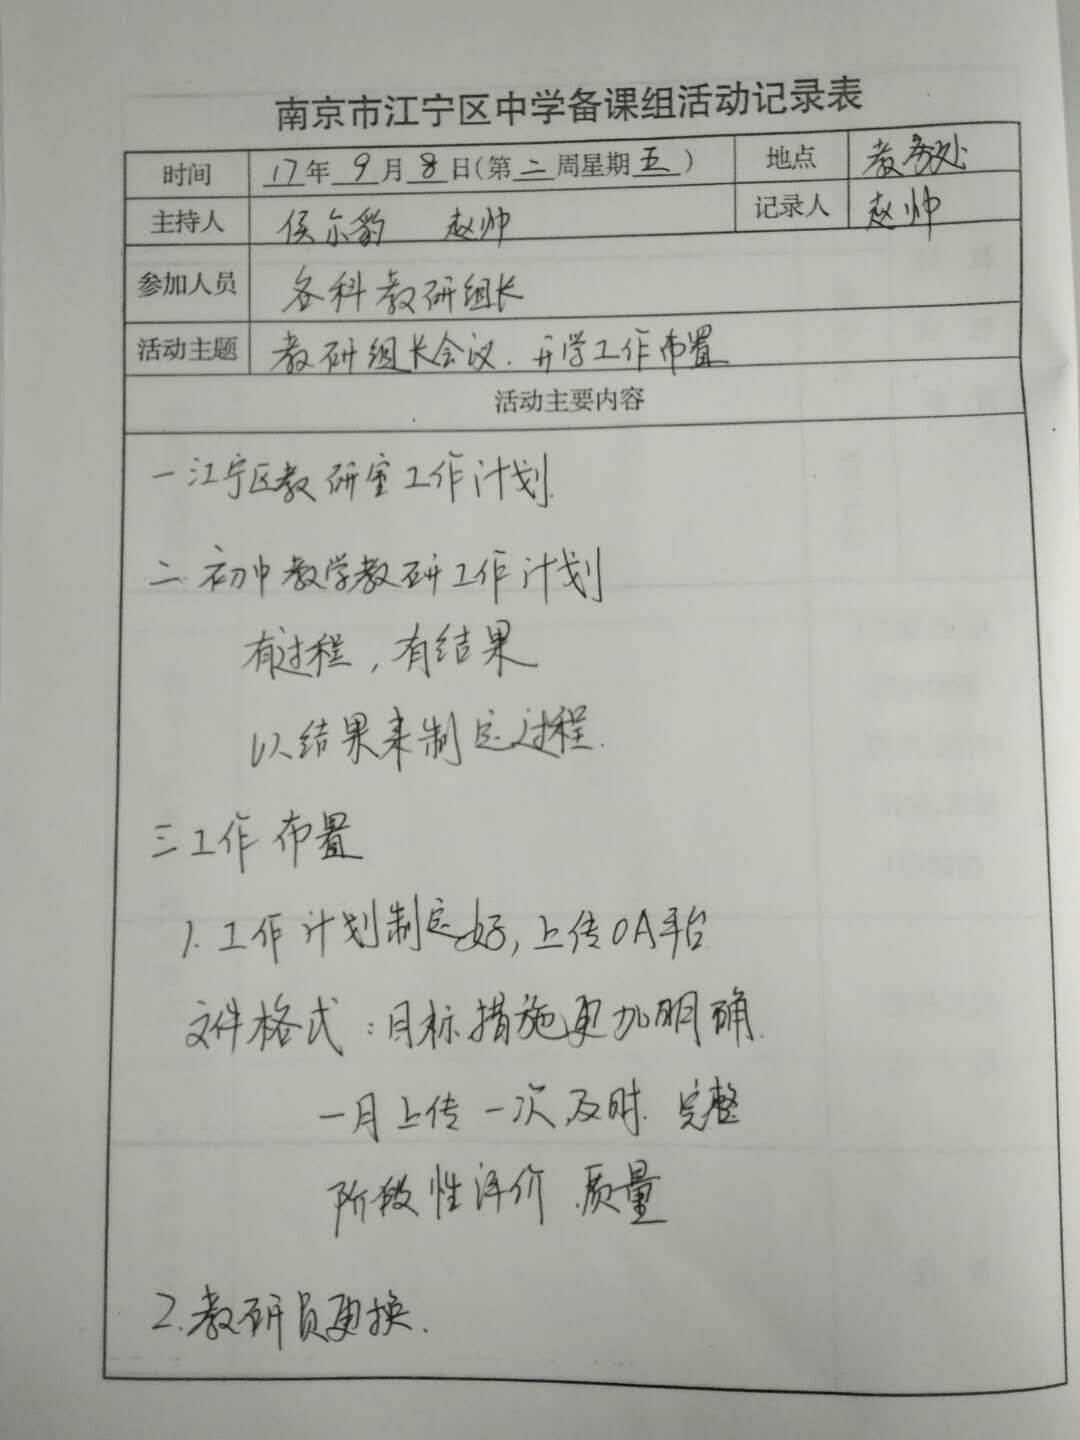 南京市江宁区中学备课组活动记录表
时间 17年9月8日(第二周星期五) 地点 教务处
主持人 侯尔豹 赵帅 记录人 赵帅
参加人员 各科教研组长
活动主题 教研组长会议.开学工作布置
活动主要内容
一江宁区教研室工作计划.
二.初中教学教研工作计划
有过程,有结果
以结果来制定过程.
三工作布置
1.工作计划制定好,上传OA平台
文件格式:目标措施更加明确.
一月上传一次,及时.完整
阶段性评价.质量
2.教研员更换.